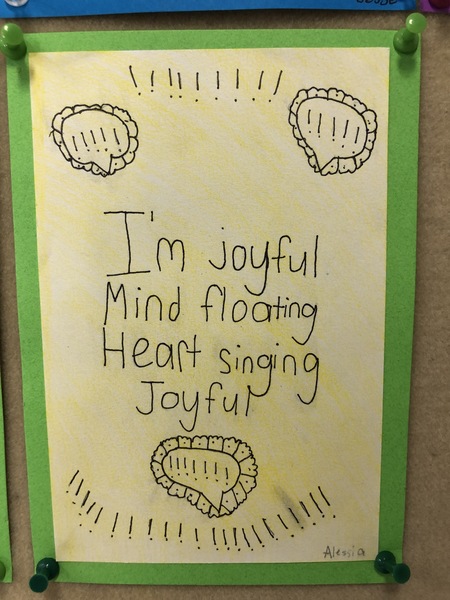 I'm joyful
Mind floating
Heart singing
Joyful
Alessia